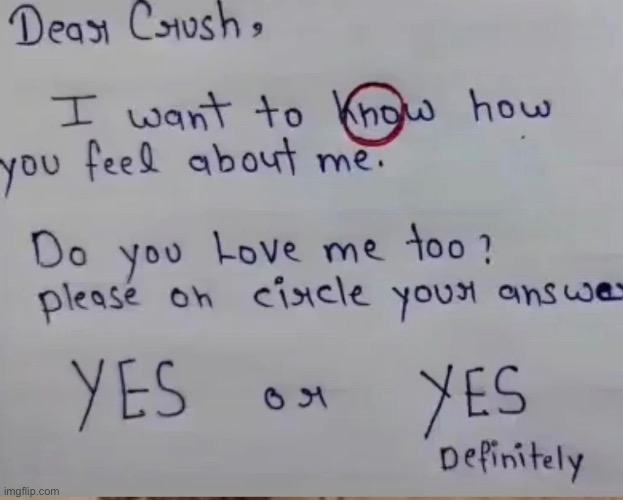 Dear Crush,
I want to know how
you feel about me.
Do you Love me too?
please on circle your answer
YES or YES
Definitely
imgflip.com